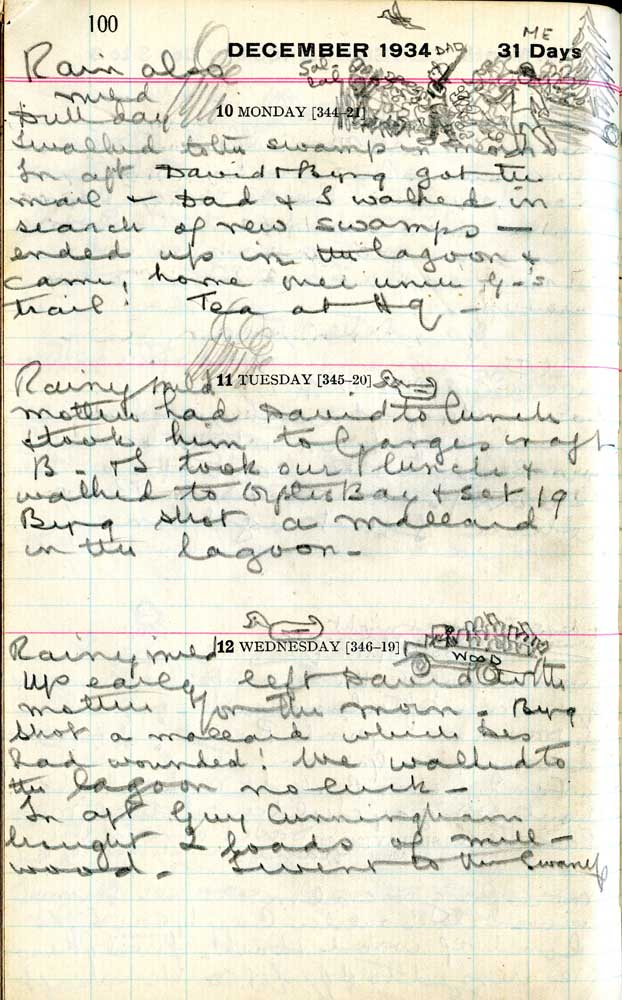 100
DECEMBER 1934
31 Days
DAD
ME
Sal-
lal
Rain also
mild
10 MONDAY [344-21]
Dull day
I walked to the swamp in morn
In aft David & Byng got the
mail & Dad & I walked in
search of new swamps —
ended up in the lagoon &
came home over
trail. Tea at HQ —
Rainy, mild
11 TUESDAY [345–20]
Mother had David to lunch
& took him to Ganges in aft
B. & I took our lunch &
walked to Bay & set 19
Byng shot a mallard
in the lagoon —
Rainy, mild
12 WEDNESDAY [346–19]
WOOD
Up early left David with
mother for the morn. Byng
shot a mallard which Des
had wounded! We walked to
the lagoon no luck —
In aft Guy Cunningham
brought 2 loads of mill-
wood. I went to the Swaney